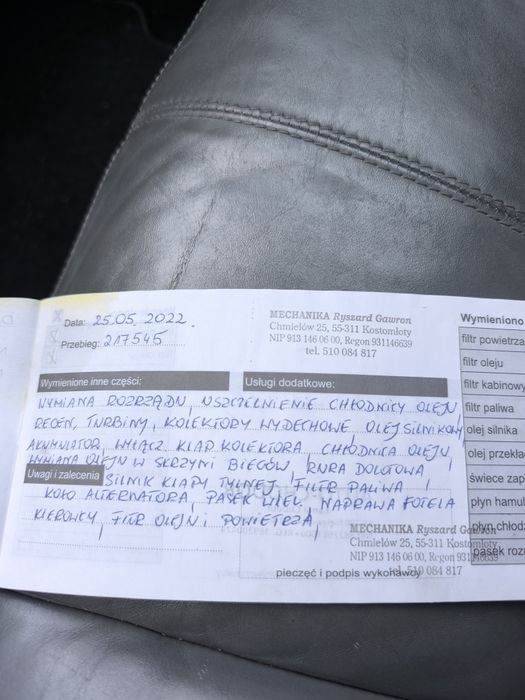 Data: 25.05.2022
Przebieg: 217545
MECHANIKA Ryszard Gawron
Chmielów 25, 55-311 Kostomłoty
NIP 913 146 06 00, Regon 931146639
tel. 510 084 817
Wymienione inne części:
Usługi dodatkowe:
WYMIANA ROZRZĄDU, USZCZELNIENIE CHŁODNICY OLEJU,
REGEN, TURBINY, KOLEKTORY WYDECHOWE, OLEJ SILNIKOWY
AKUMULATOR, WYŁĄCZ KLAP KOLEKTORA, CHŁODNICA OLEJU,
WYMIANA OLEJU W SKRZYNI BIEGÓW, RURA DOLOTOWA,
Uwagi i zalecenia
SILNIK KLAPY TYLNEJ, FILTR PALIWA,
KOŁO ALTERNATORA, PASEK WIEL. NAPRAWA FOTELA
KIEROWCY, FILTR OLEJU I POWIETRZA,
MECHANIKA Ryszard Gawron
Chmielów 25, 55-311 Kostomłoty
NIP 913 146 06 00, Regon 931146639
tel. 510 084 817
pieczęć i podpis wykonawcy
Wymieniono
filtr powietrza
filtr oleju
filtr kabinowy
filtr paliwa
olej silnika
olej przekła
świece zap
płyn hamul
płyn chłodz
pasek rozr